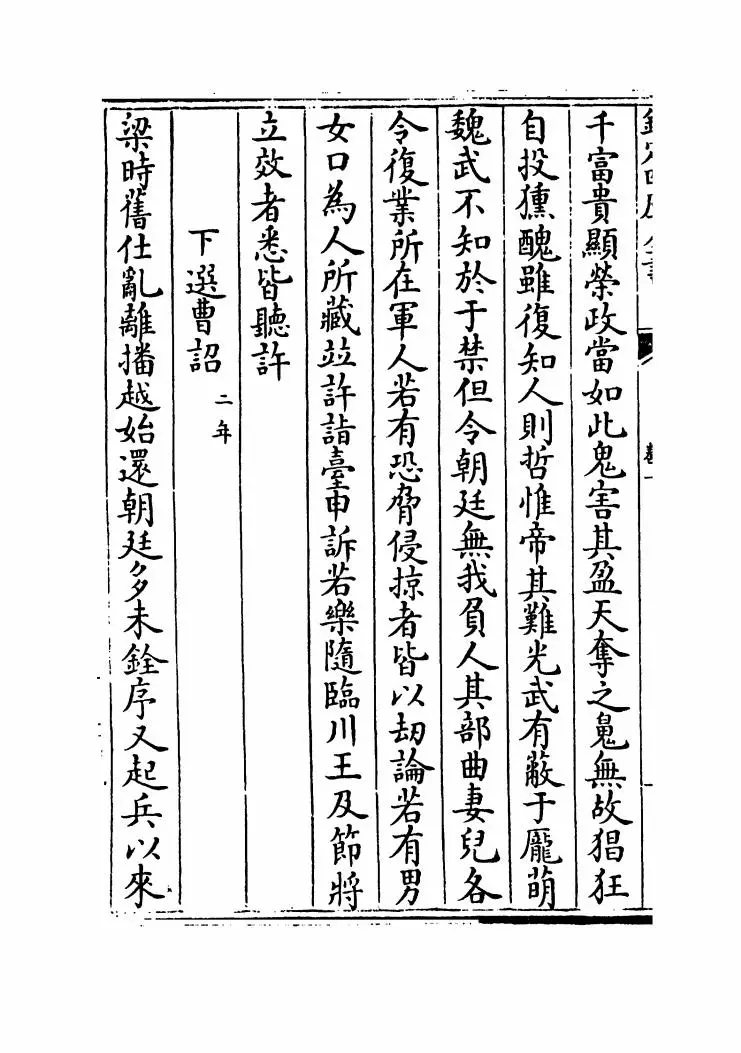 千富貴顯榮政當如此鬼害其盈天奪之鬽無故猖狂
自投獯醜雖復知人則哲惟帝其難光武有蔽于龐萌
魏武不知於于禁但令朝廷無我負人其部曲妻兒各
令復業所在軍人若有恐脅侵掠者皆以刼論若有男
女口為人所藏竝許詣臺申訴若樂隨臨川王及節將
立效者悉皆聽許
下選曹詔二年
梁時舊仕亂離播越始還朝廷多未銓序又起兵以來